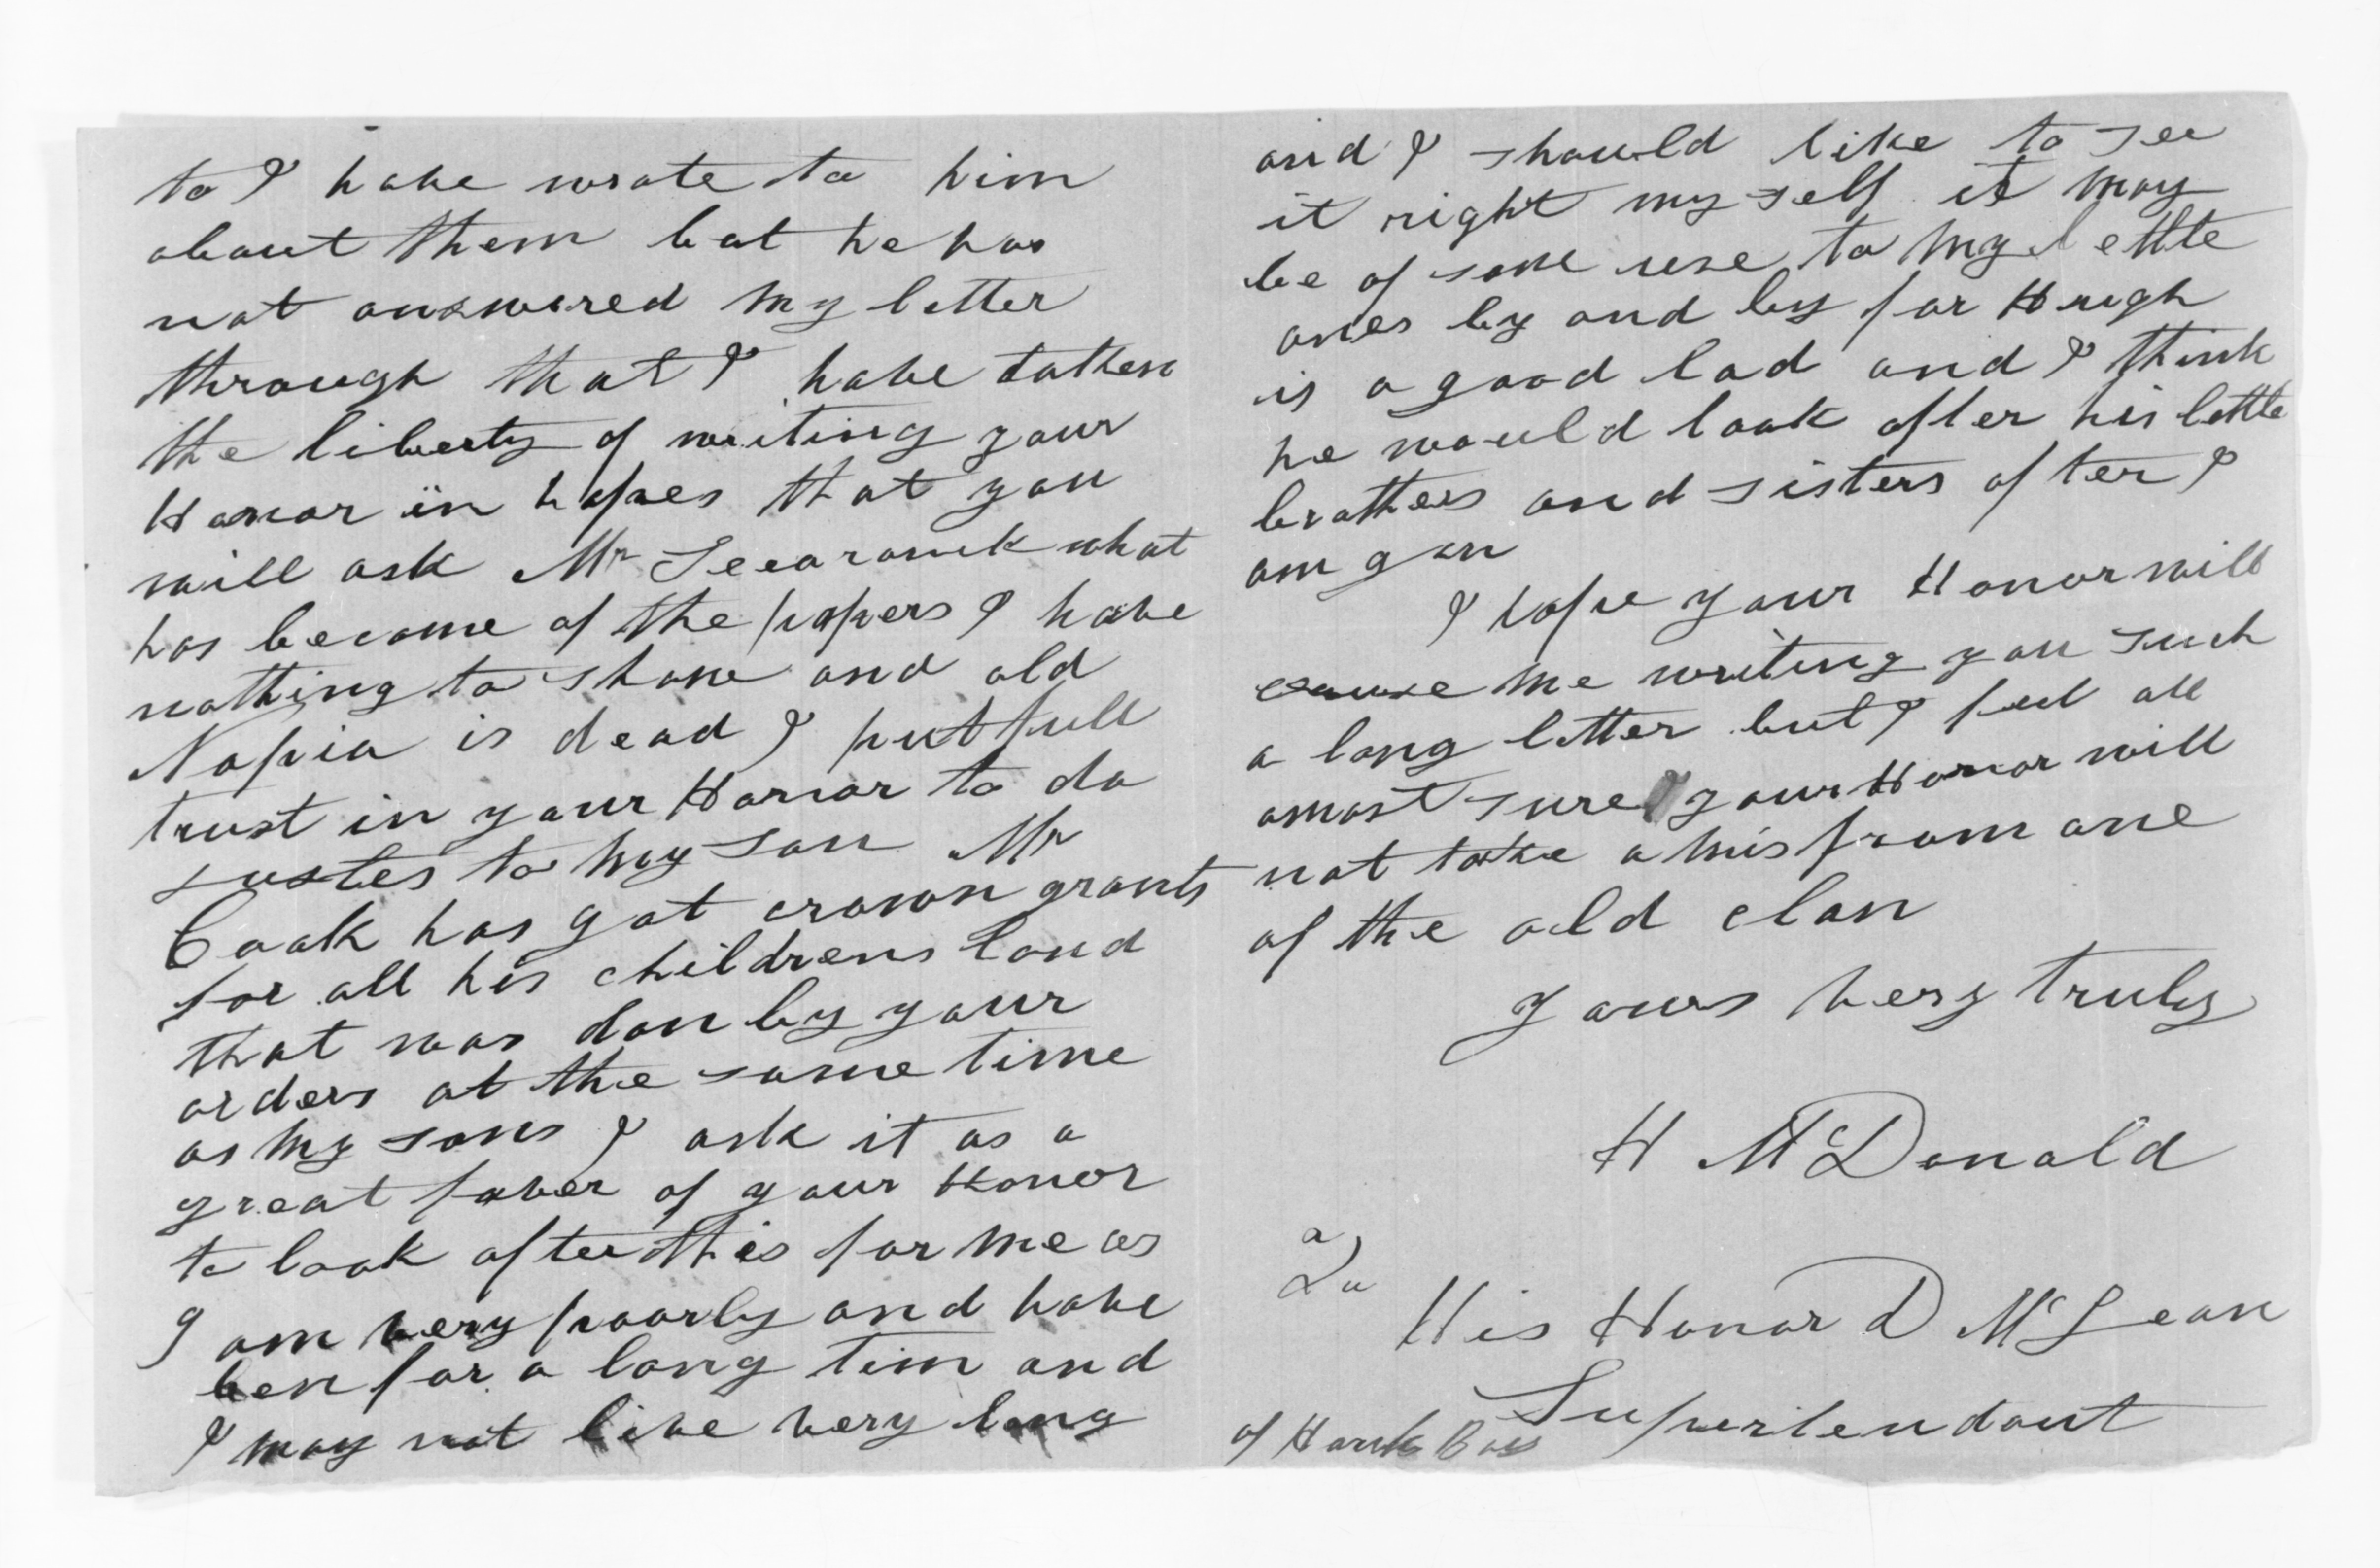 to I have wrote to him
about them bat he has
not answored my letter
through that I have tathen
the liberty of writing your
Honor in hopes that you
will ask Mr what
has become of the papers I have
nothing to show and old
Napia is dead I put full
trust in your Honor to do
justes to my son Mr
Cook has got crown grants
for all his childrens land
that was don by your
orders at the same time
as my sons I ask it as a
great faver of your Honor
to look after this for me as
I am very poorly and have
ben for a long tim and
I may not live very long
and I should like to see
it right my self it may
be of some use to my lettle
ones by and by for Hugh
is a good lad and I think
he would look after his lettle
brothers and sisters after I
am gon
I hope your Honor will
excuse me writing you such
a long letter but I feel all
amost sure your Honor will
not take amis from one
of the old clan
yours very truly
H McDonald
To
His Honor D McLean
Supertendant
of Hawk Bay